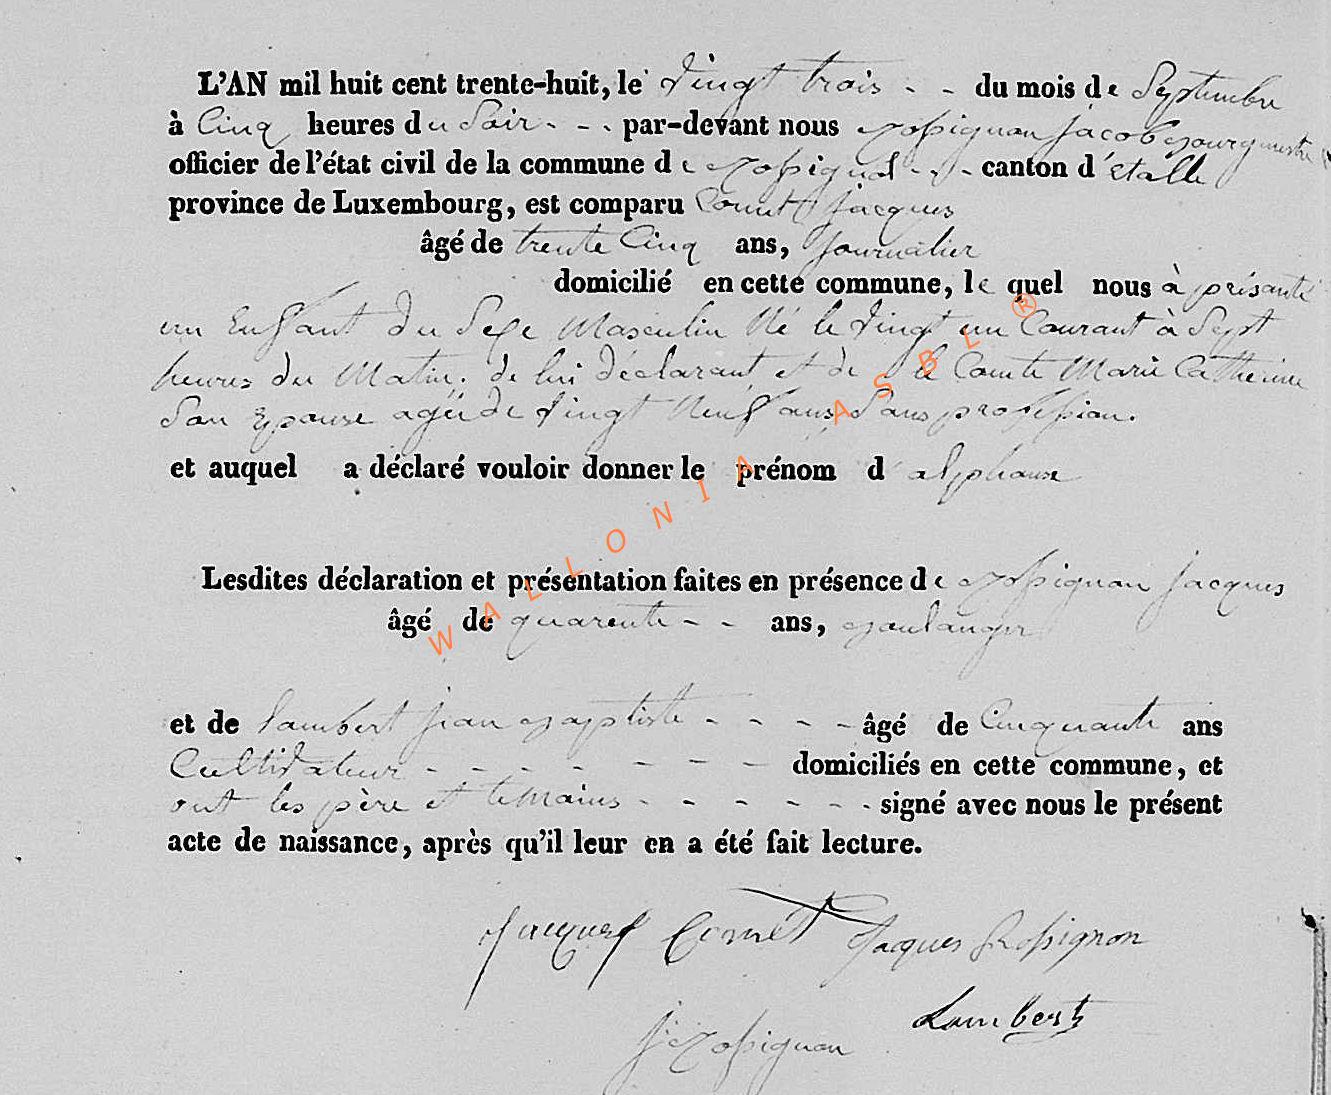 L'AN mil huit cent trente-huit, le vingt trois - - du mois de Septembre
à Cinq heures du Soir - - - par-devant nous Rossignon Jacob Bourgmestre
officier de l'état civil de la commune de Rossignol - - - canton d'étalle
province de Luxembourg, est comparu Cornet Jacques
âgé de trente Cinq ans, Journalier
domicilié en cette commune, lequel nous à présanté
un Enfant du Sexe Masculin Né le vingt un Courant à Sept
heures du Matin. de lui déclarant et de Comte Marie Catherine
Son Epouse agée de vingt Neuf ans, Sans profession.
et auquel a déclaré vouloir donner le prénom d'alphonse
Lesdites déclaration et présentation faites en présence de Rossignon Jacques
âgé de quarente - - ans, Boulanger
et de Lambert jean Baptiste - - - - âgé de Cinquante ans
Cultivateur - - - - - - - - domiciliés en cette commune, et
ont les père et temoins - - - - - - signé avec nous le présent
acte de naissance, après qu'il leur en a été fait lecture.
Jacques Cornet Jacques Rossignon
Lambert
J. Rossignon
WALLONIA ASBL ®